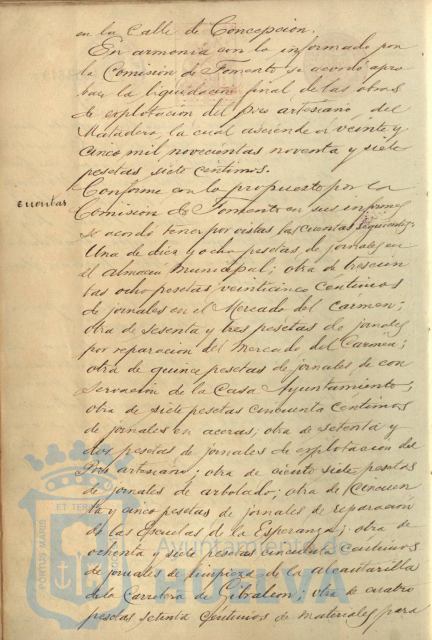 en la Calle de Concepcion.
En armonia con lo informado por
la Comisión de Fomento se acordó apro
bar la liquidacion final de las obras
de explotacion del Pozo artesiano del
Matadero, la cual asciende a veinte y
cinco mil novecientas noventa y siete
pesetas siete centimos.
Cuentas
Conforme con lo propuesto por la
Comision de Fomento en sus informes
se acordó tener por vistas las cuentas siguientes:
Una de diez y ocho pesetas de jornales en
el almacen Municipal; otra de trescien
tas ocho pesetas veinticinco centimos
de jornales en el Mercado del Carmen;
otra de sesenta y tres pesetas de jornales
por reparacion del Mercado del Carmen;
otra de quince pesetas de jornales de con
servacion de la Casa Ayuntamiento;
otra de siete pesetas cincuenta centimos
de jornales en aceras; otra de setenta y
dos pesetas de jornales de explotacion del
Pozo artesiano; otra de ciento siete pesetas
de jornales de arbolado; otra de cincuen
ta y cinco pesetas de jornales de reparacion
de las Escuelas de la Esperanza; otra de
ochenta y siete pesetas cincuenta centimos
de jornales de limpieza de la alcantarilla
de la Carretera de Gibraleon; otra de cuatro
pesetas setenta centimos de materiales para
PORTUS MARIS ET TERRAE
Ayuntamiento de
HUELVA